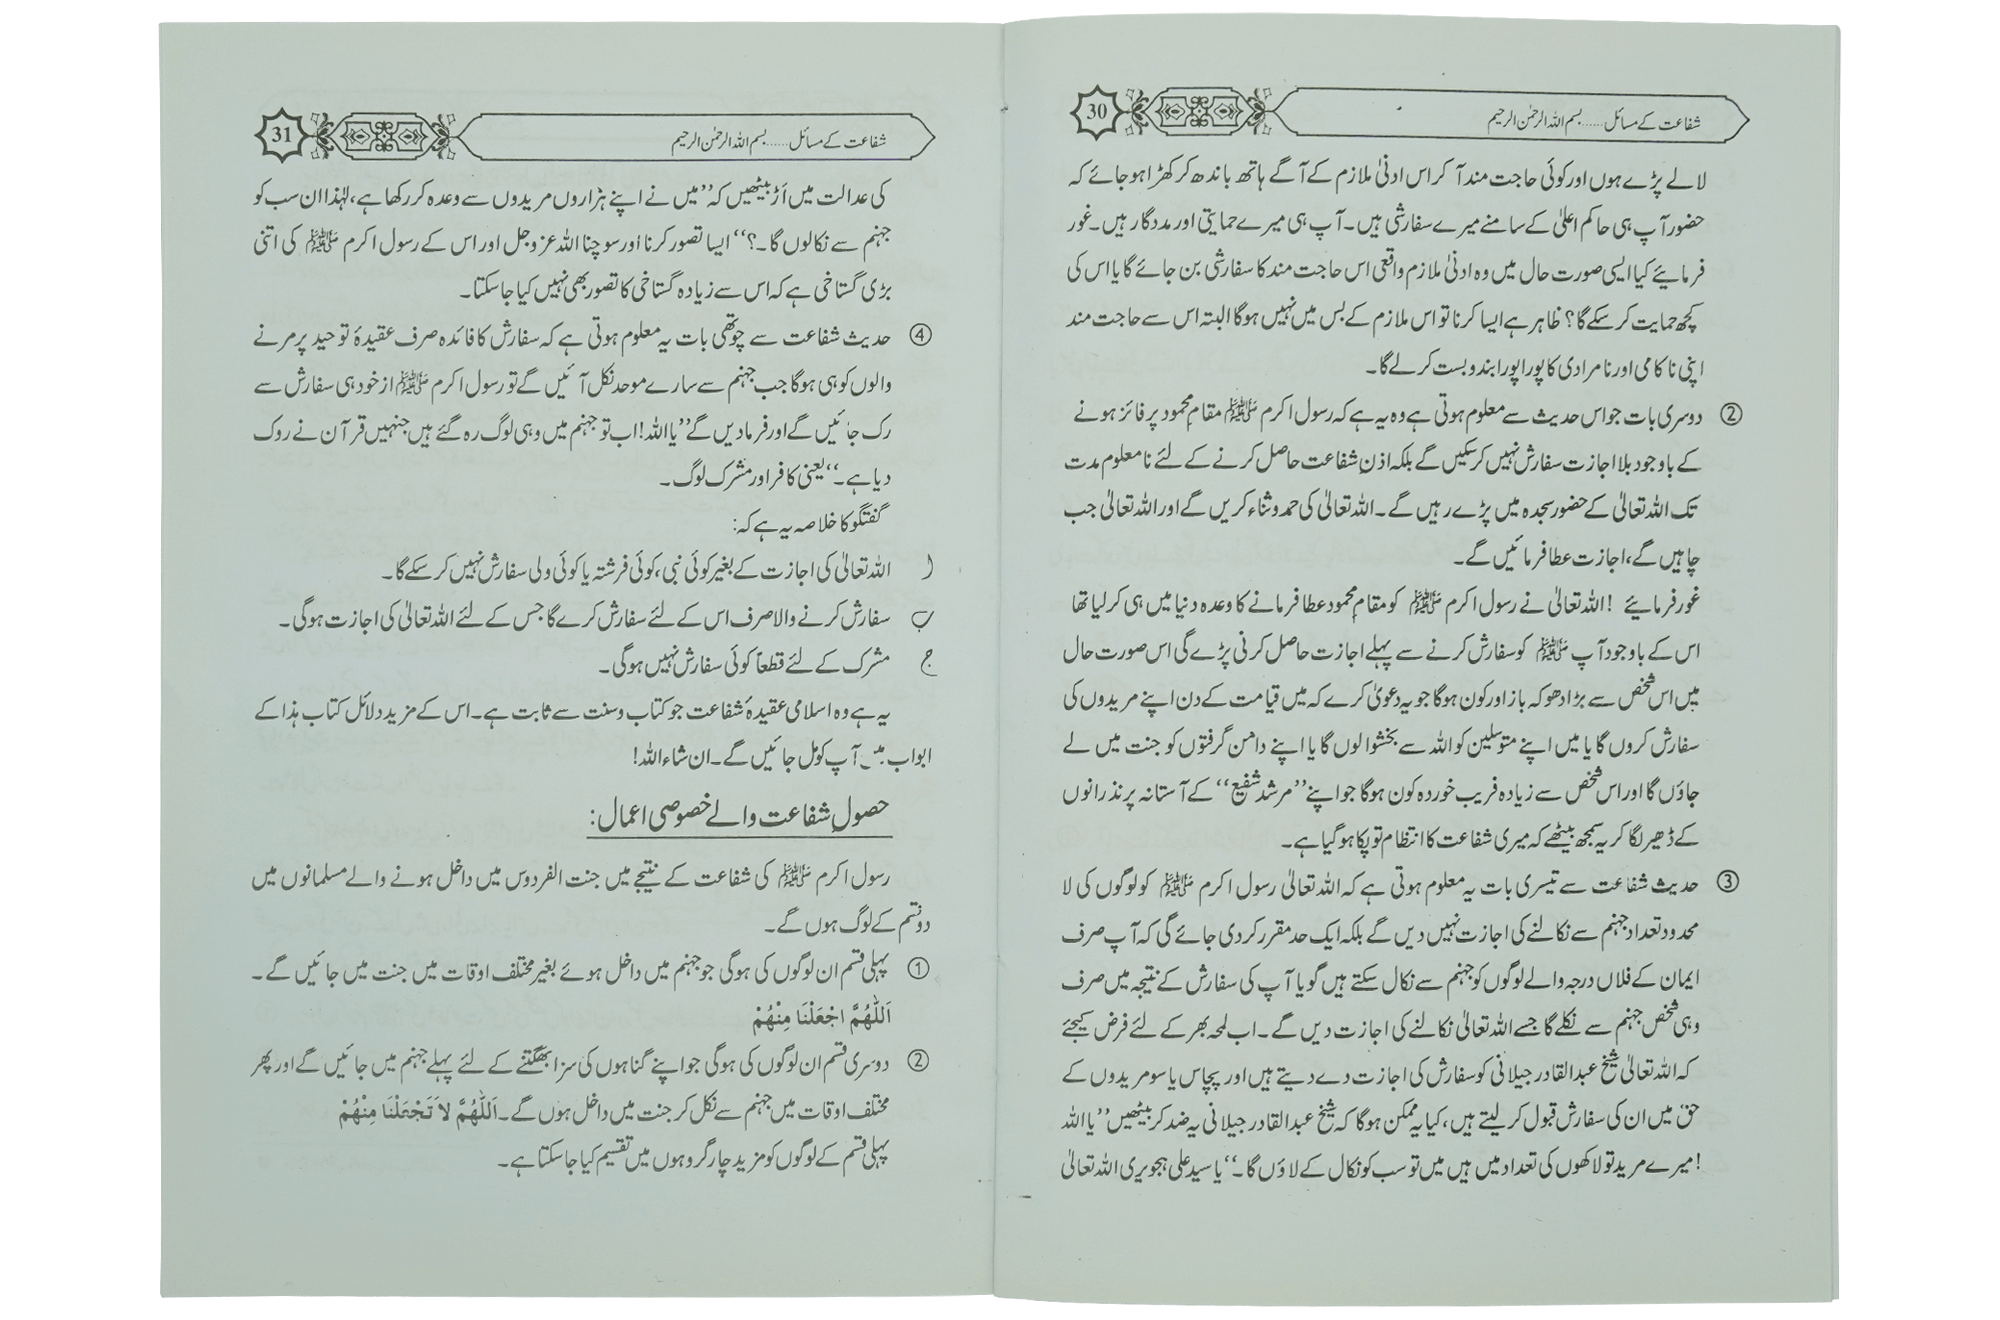 شفاعت کے مسائل......بسم اللہ الرحمٰن الرحیم
30
لالے پڑے ہوں اور کوئی حاجت مند آ کر اس ادنیٰ ملازم کے آگے ہاتھ باندھ کر کھڑا ہو جائے کہ
حضور آپ ہی حاکم اعلیٰ کے سامنے میرے سفارشی ہیں۔ آپ ہی میرے حمایتی اور مددگار ہیں۔ غور
فرمائیے کیا ایسی صورت حال میں وہ ادنیٰ ملازم واقعی اس حاجت مند کا سفارشی بن جائے گا یا اس کی
کچھ حمایت کر سکے گا؟ ظاہر ہے ایسا کرنا تو اس ملازم کے بس میں نہیں ہوگا البتہ اس سے حاجت مند
اپنی ناکامی اور نامرادی کا پورا پورا بندوبست کر لے گا۔
② دوسری بات جو اس حدیث سے معلوم ہوتی ہے وہ یہ ہے کہ رسول اکرم ﷺ مقامِ محمود پر فائز ہونے
کے باوجود بلا اجازت سفارش نہیں کر سکیں گے بلکہ اذنِ شفاعت حاصل کرنے کے لئے نامعلوم مدت
تک اللہ تعالیٰ کے حضور سجدہ میں پڑے رہیں گے۔ اللہ تعالیٰ کی حمد و ثناء کریں گے اور اللہ تعالیٰ جب
چاہیں گے، اجازت عطا فرمائیں گے۔
غور فرمائیے ! اللہ تعالیٰ نے رسول اکرم ﷺ کو مقامِ محمود عطا فرمانے کا وعدہ دنیا میں ہی کر لیا تھا
اس کے باوجود آپ ﷺ کو سفارش کرنے سے پہلے اجازت حاصل کرنی پڑے گی اس صورت حال
میں اس شخص سے بڑا دھوکہ باز اور کون ہوگا جو یہ دعویٰ کرے کہ میں قیامت کے دن اپنے مریدوں کی
سفارش کروں گا یا میں اپنے متوسلین کو اللہ سے بخشوا لوں گا یا اپنے دامن گرفتوں کو جنت میں لے
جاؤں گا اور اس شخص سے زیادہ فریب خوردہ کون ہوگا جو اپنے ’’مرشد شفیع‘‘ کے آستانہ پر نذرانوں
کے ڈھیر لگا کر یہ سمجھ بیٹھے کہ میری شفاعت کا انتظام تو پکا ہو گیا ہے۔
③ حدیث شفاعت سے تیسری بات یہ معلوم ہوتی ہے کہ اللہ تعالیٰ رسول اکرم ﷺ کو لوگوں کی لا
محدود تعداد جہنم سے نکالنے کی اجازت نہیں دیں گے بلکہ ایک حد مقرر کر دی جائے گی کہ آپ صرف
ایمان کے فلاں درجہ والے لوگوں کو جہنم سے نکال سکتے ہیں گویا آپ کی سفارش کے نتیجہ میں صرف
وہی شخص جہنم سے نکلے گا جسے اللہ تعالیٰ نکالنے کی اجازت دیں گے۔ اب لمحہ بھر کے لئے فرض کیجئے
کہ اللہ تعالیٰ شیخ عبدالقادر جیلانی کو سفارش کی اجازت دے دیتے ہیں اور پچاس یا سو مریدوں کے
حق میں ان کی سفارش قبول کر لیتے ہیں، کیا یہ ممکن ہوگا کہ شیخ عبدالقادر جیلانی یہ ضد کر بیٹھیں ’’یا اللہ
! میرے مرید تو لاکھوں کی تعداد میں ہیں میں تو سب کو نکال کے لاؤں گا۔‘‘ یا سید علی ہجویری اللہ تعالیٰ
شفاعت کے مسائل......بسم اللہ الرحمٰن الرحیم
31
کی عدالت میں اَڑ بیٹھیں کہ ’’میں نے اپنے ہزاروں مریدوں سے وعدہ کر رکھا ہے، لہٰذا ان سب کو
جہنم سے نکالوں گا۔؟‘‘ ایسا تصور کرنا اور سوچنا اللہ عزوجل اور اس کے رسول اکرم ﷺ کی اتنی
بڑی گستاخی ہے کہ اس سے زیادہ گستاخی کا تصور بھی نہیں کیا جا سکتا۔
④ حدیث شفاعت سے چوتھی بات یہ معلوم ہوتی ہے کہ سفارش کا فائدہ صرف عقیدۂ توحید پر مرنے
والوں کو ہی ہوگا جب جہنم سے سارے موحد نکل آئیں گے تو رسول اکرم ﷺ از خود ہی سفارش سے
رک جائیں گے اور فرما دیں گے ’’یا اللہ! اب تو جہنم میں وہی لوگ رہ گئے ہیں جنہیں قرآن نے روک
دیا ہے۔‘‘ یعنی کافر اور مشرک لوگ۔
گفتگو کا خلاصہ یہ ہے کہ:
ا اللہ تعالیٰ کی اجازت کے بغیر کوئی نبی، کوئی فرشتہ یا کوئی ولی سفارش نہیں کر سکے گا۔
ب سفارش کرنے والا صرف اس کے لئے سفارش کرے گا جس کے لئے اللہ تعالیٰ کی اجازت ہوگی۔
ج مشرک کے لئے قطعاً کوئی سفارش نہیں ہوگی۔
یہ ہے وہ اسلامی عقیدۂ شفاعت جو کتاب و سنت سے ثابت ہے۔ اس کے مزید دلائل کتاب ہذا کے
ابواب میں آپ کو مل جائیں گے۔ ان شاء اللہ!
حصولِ شفاعت والے خصوصی اعمال:
رسول اکرم ﷺ کی شفاعت کے نتیجے میں جنت الفردوس میں داخل ہونے والے مسلمانوں میں
دو قسم کے لوگ ہوں گے۔
① پہلی قسم ان لوگوں کی ہوگی جو جہنم میں داخل ہوئے بغیر مختلف اوقات میں جنت میں جائیں گے۔
اَللّٰهُمَّ اجْعَلْنَا مِنْهُمْ
② دوسری قسم ان لوگوں کی ہوگی جو اپنے گناہوں کی سزا بھگتنے کے لئے پہلے جہنم میں جائیں گے اور پھر
مختلف اوقات میں جہنم سے نکل کر جنت میں داخل ہوں گے۔ اَللّٰهُمَّ لاَ تَجْعَلْنَا مِنْهُمْ
پہلی قسم کے لوگوں کو مزید چار گروہوں میں تقسیم کیا جا سکتا ہے۔